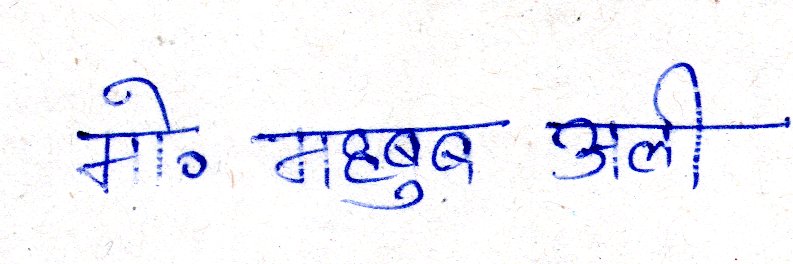 मो० महबुब अली